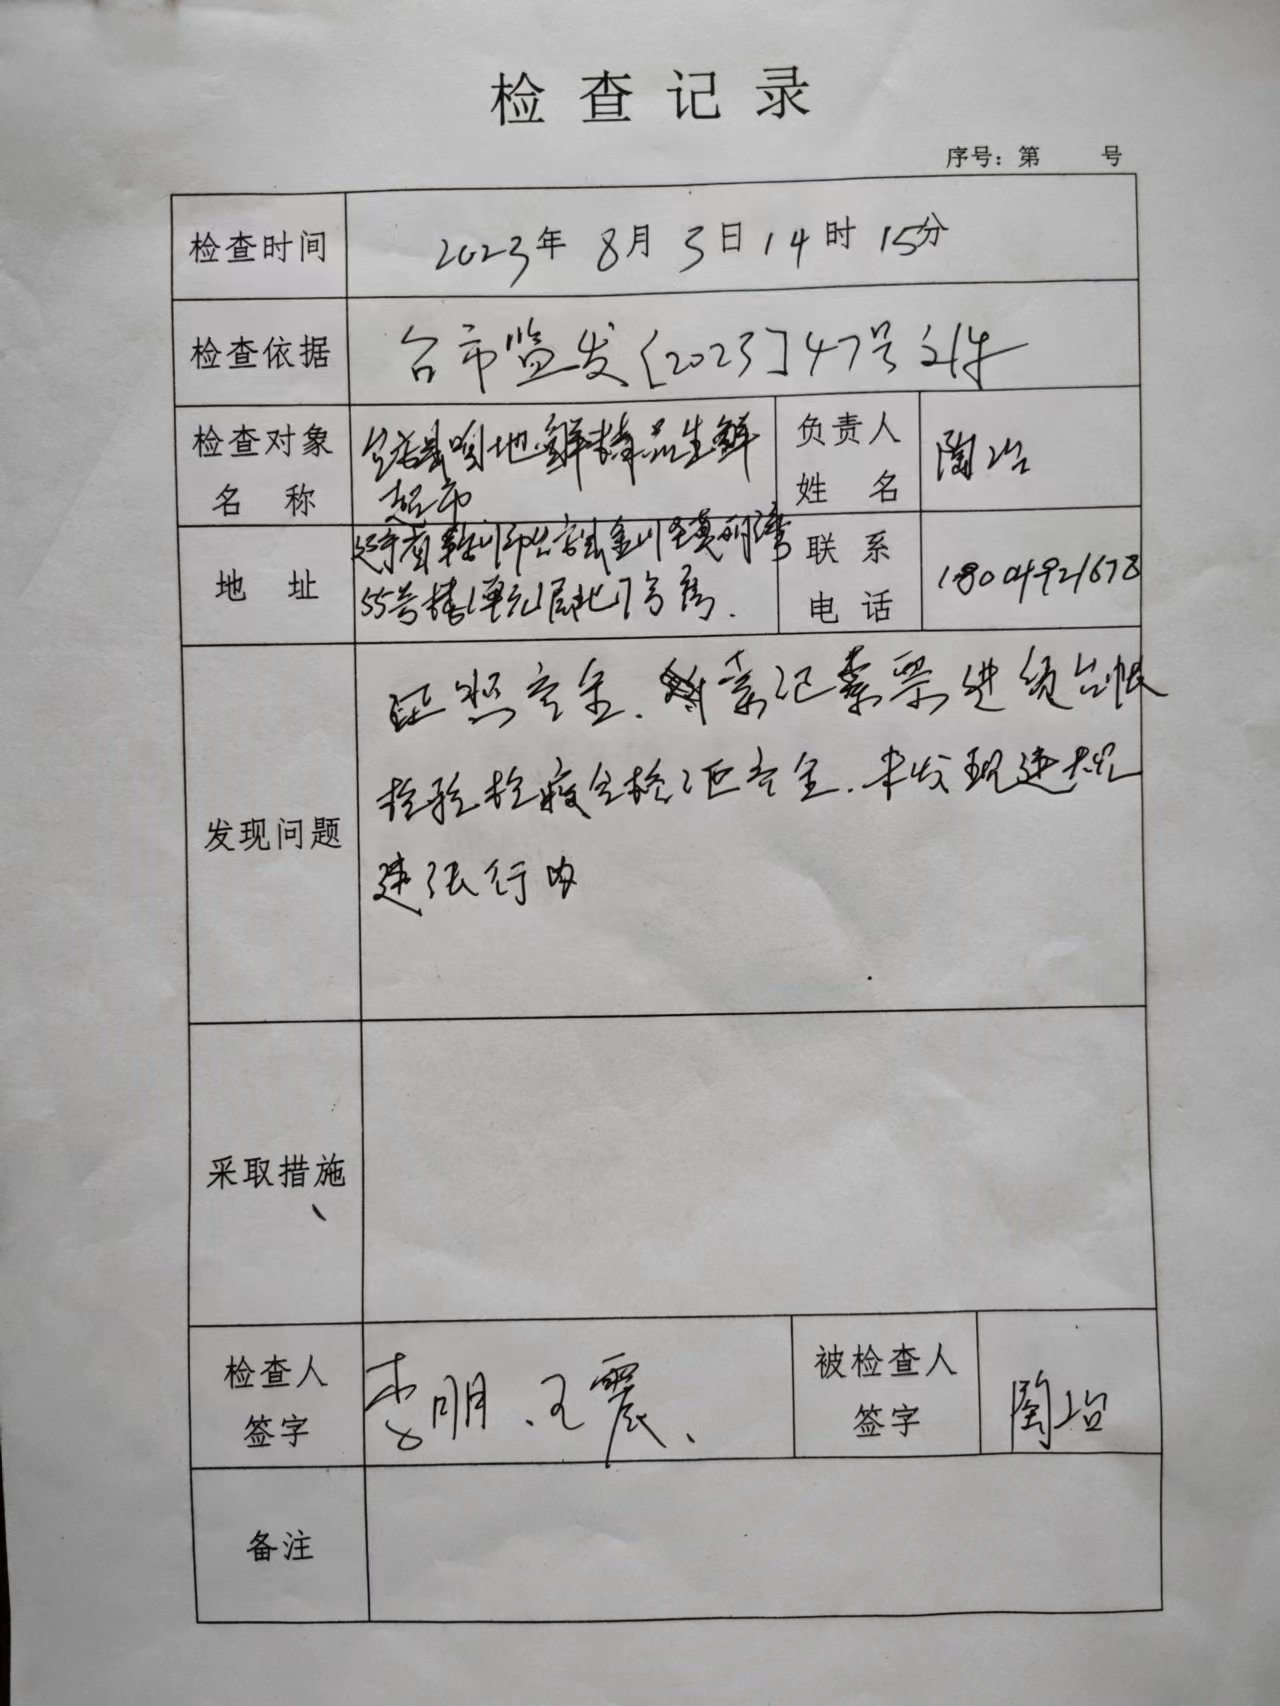 检查记录
序号：第 号
检查时间 2023年 8月 3日 14时 15分
检查依据 台市监发〔2023〕47号文件
检查对象
名 称
地鲜精品生鲜
超市
负责人
姓 名
陶冶
地 址
辽宁省鞍山市台安县
55号楼1单元1层 7号房.
联 系
电 话
18004921678
发现问题
证照齐全. 索证索票进货台帐
检验检疫合格证齐全. 未发现违规
违法行为
采取措施
检查人
签字
李明、王震、
被检查人
签字
陶冶
备注